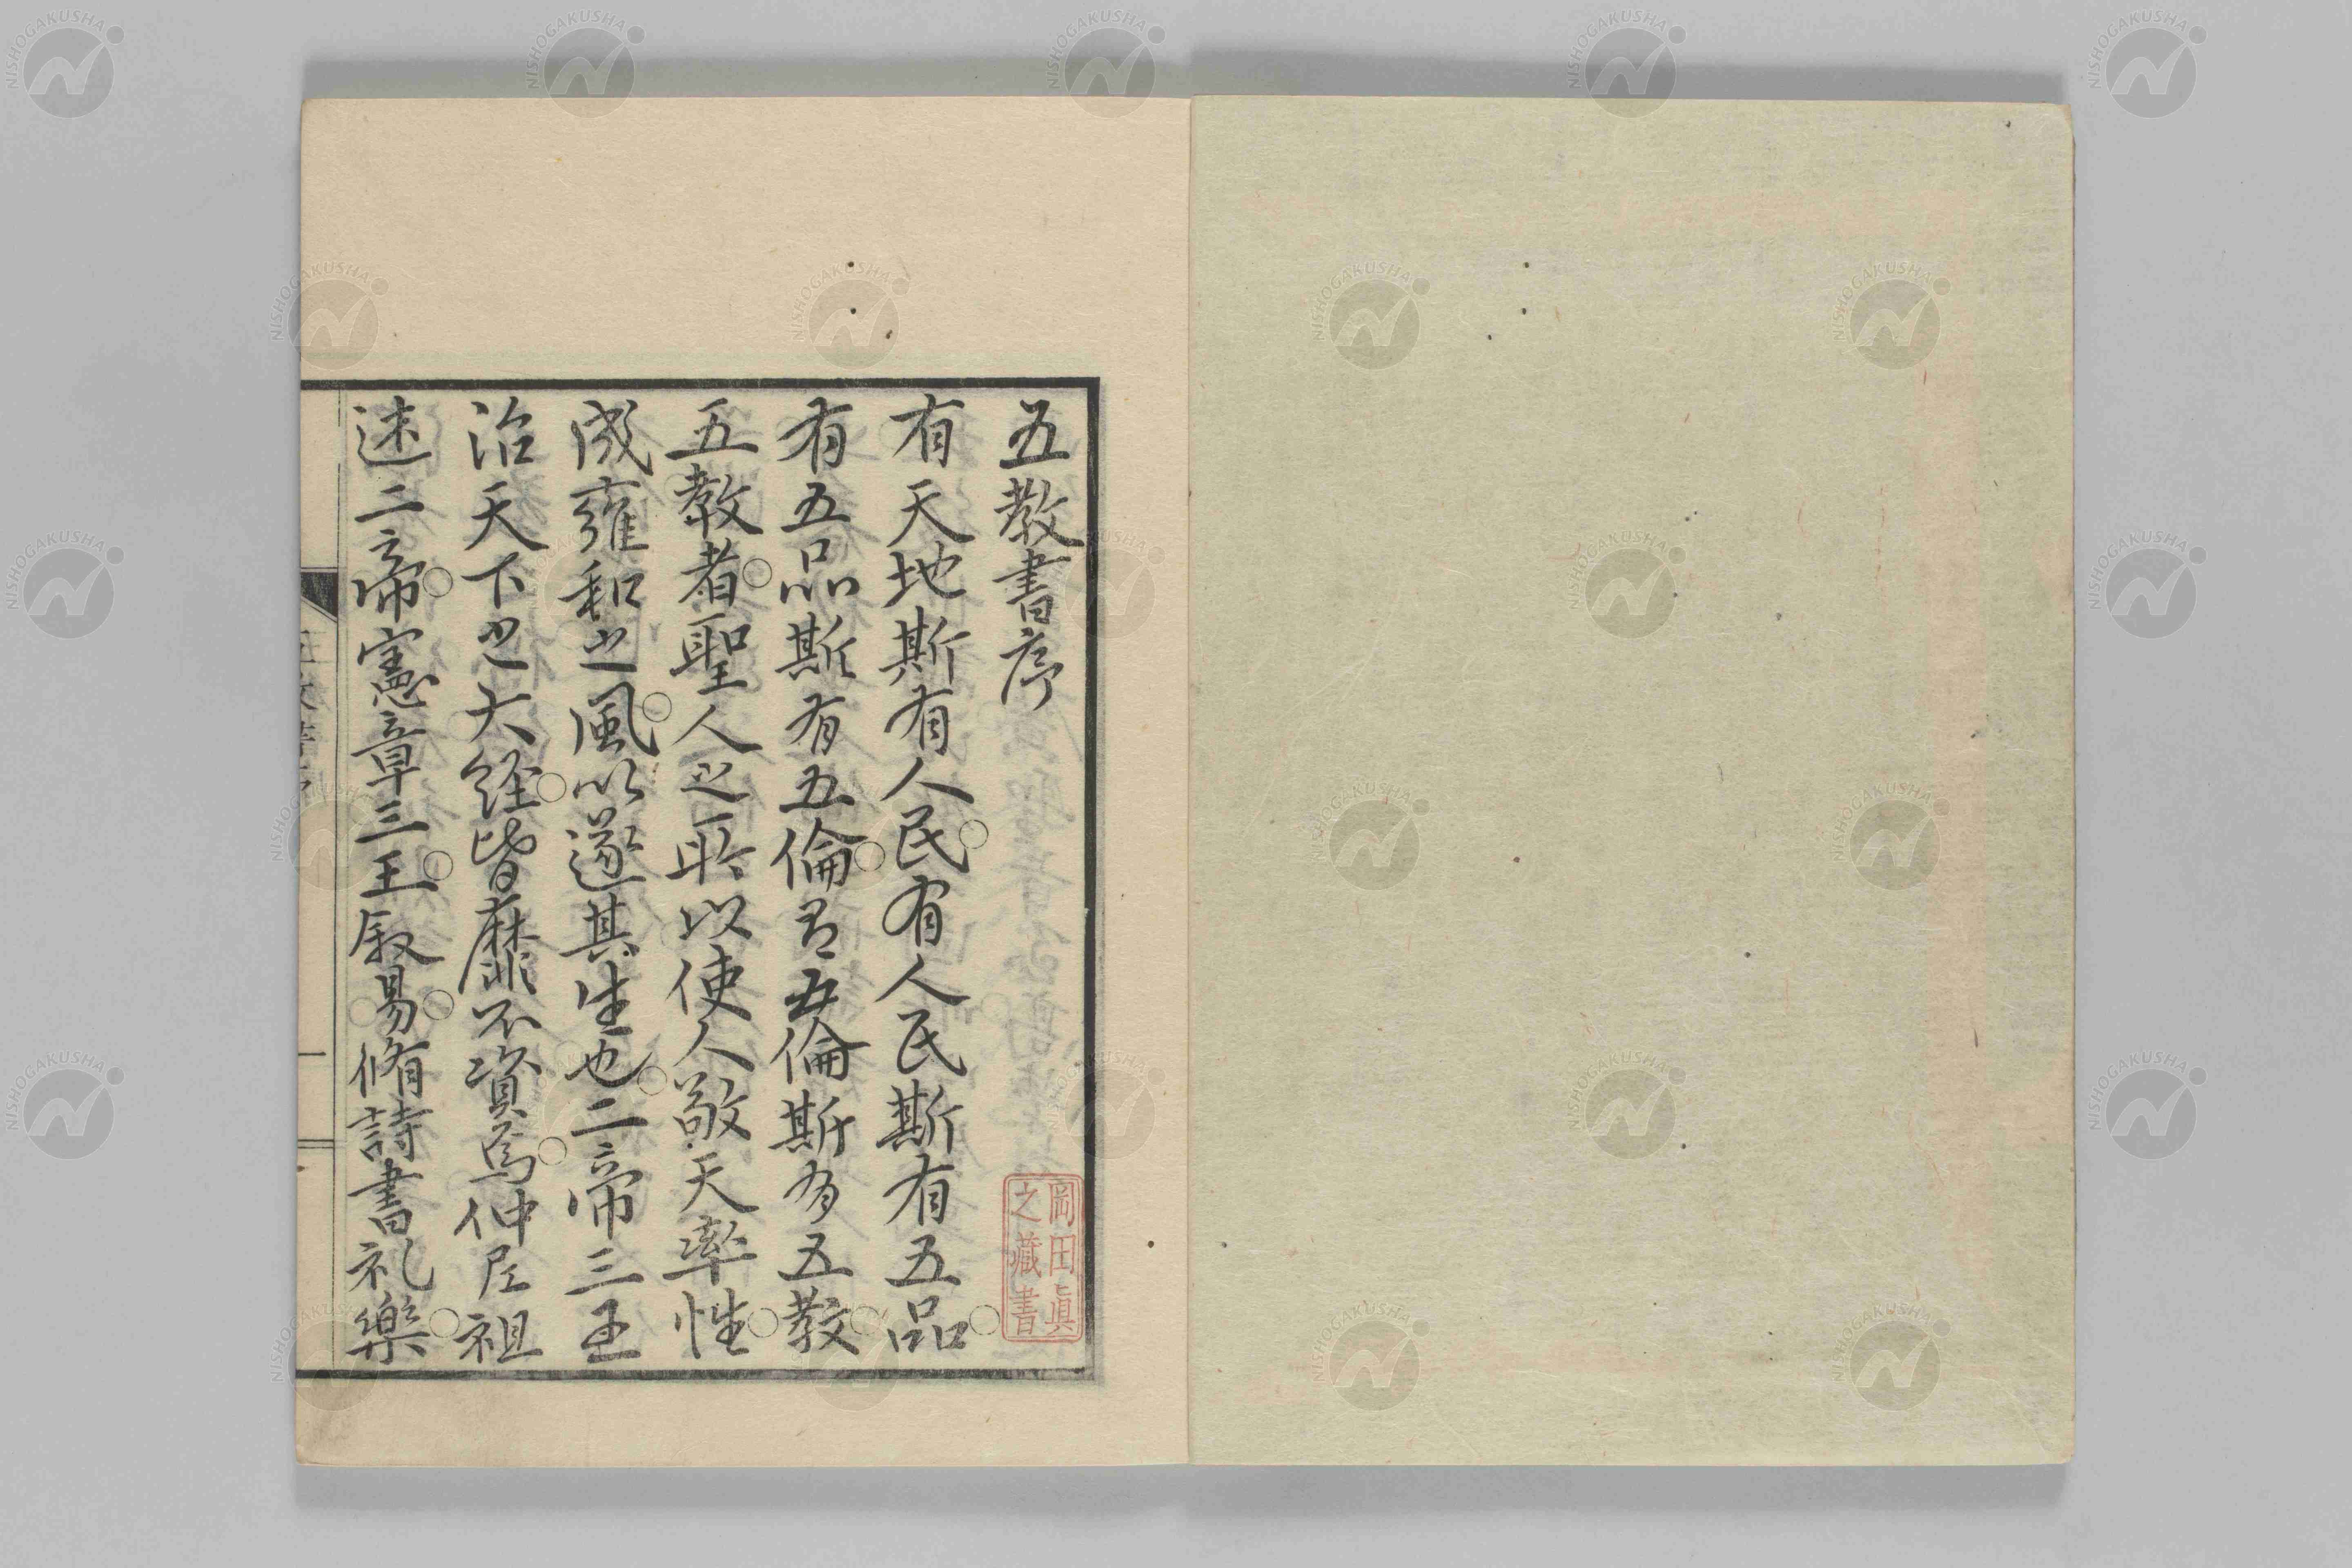 五教書序
有天地斯有人民。有人民斯有五品。
有五品斯有五倫。有五倫斯有五教。
五教者。聖人之所以使人敬天率性。
成雍和之風。以遂其生也。二帝三王
治天下之大経。皆靡不資焉。仲尼祖
述二帝。憲章三王。叙易。脩詩書礼樂。
岡田眞
之藏書
NISHOGAKUSHA